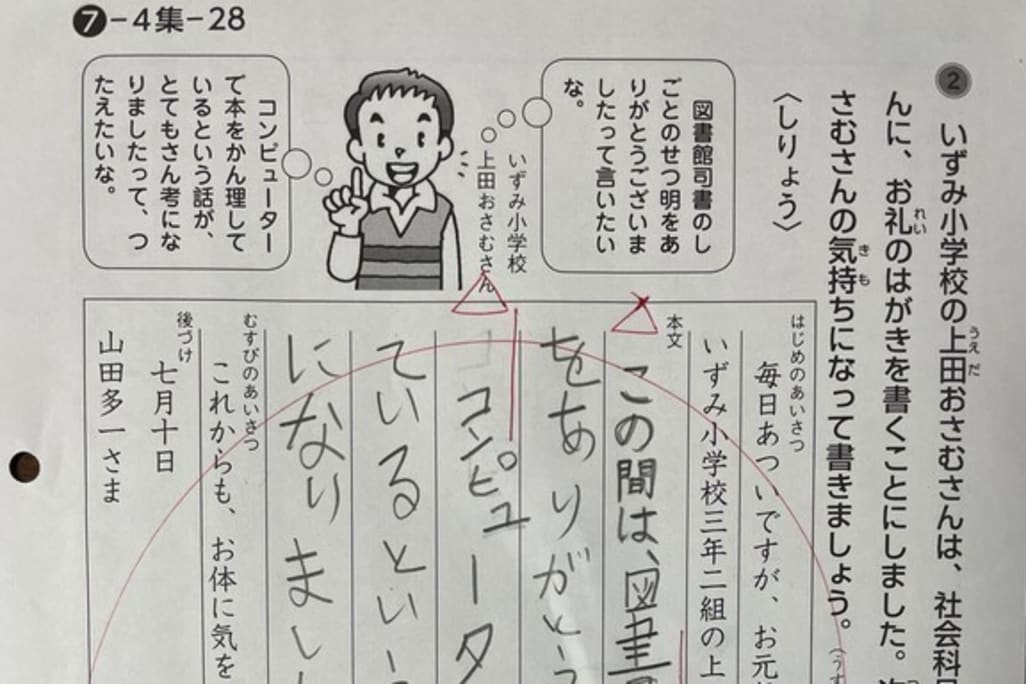 ❼-4集-28
❷ いずみ小学校の上田おさむさんは、社会科
んに、お礼のはがきを書くことにしました。
さむさんの気持ちになって書きましょう。
〈しりょう〉
図書館司書のし
ごとのせつ明をあ
りがとうございま
したって言いたい
な。
いずみ小学校
上田おさむさん
コンピューター
て本をかん理して
いるという話が、
とてもさん考にな
りましたって、つ
たえたいな。
はじめのあいさつ
毎日あついですが、お元
いずみ小学校三年二組の上
本文
この間は、図書
をありがとう
コンピュータ
ているとい
になりまし
むすびのあいさつ
これからも、お体に気を
後づけ
七月十日
山田多一さま